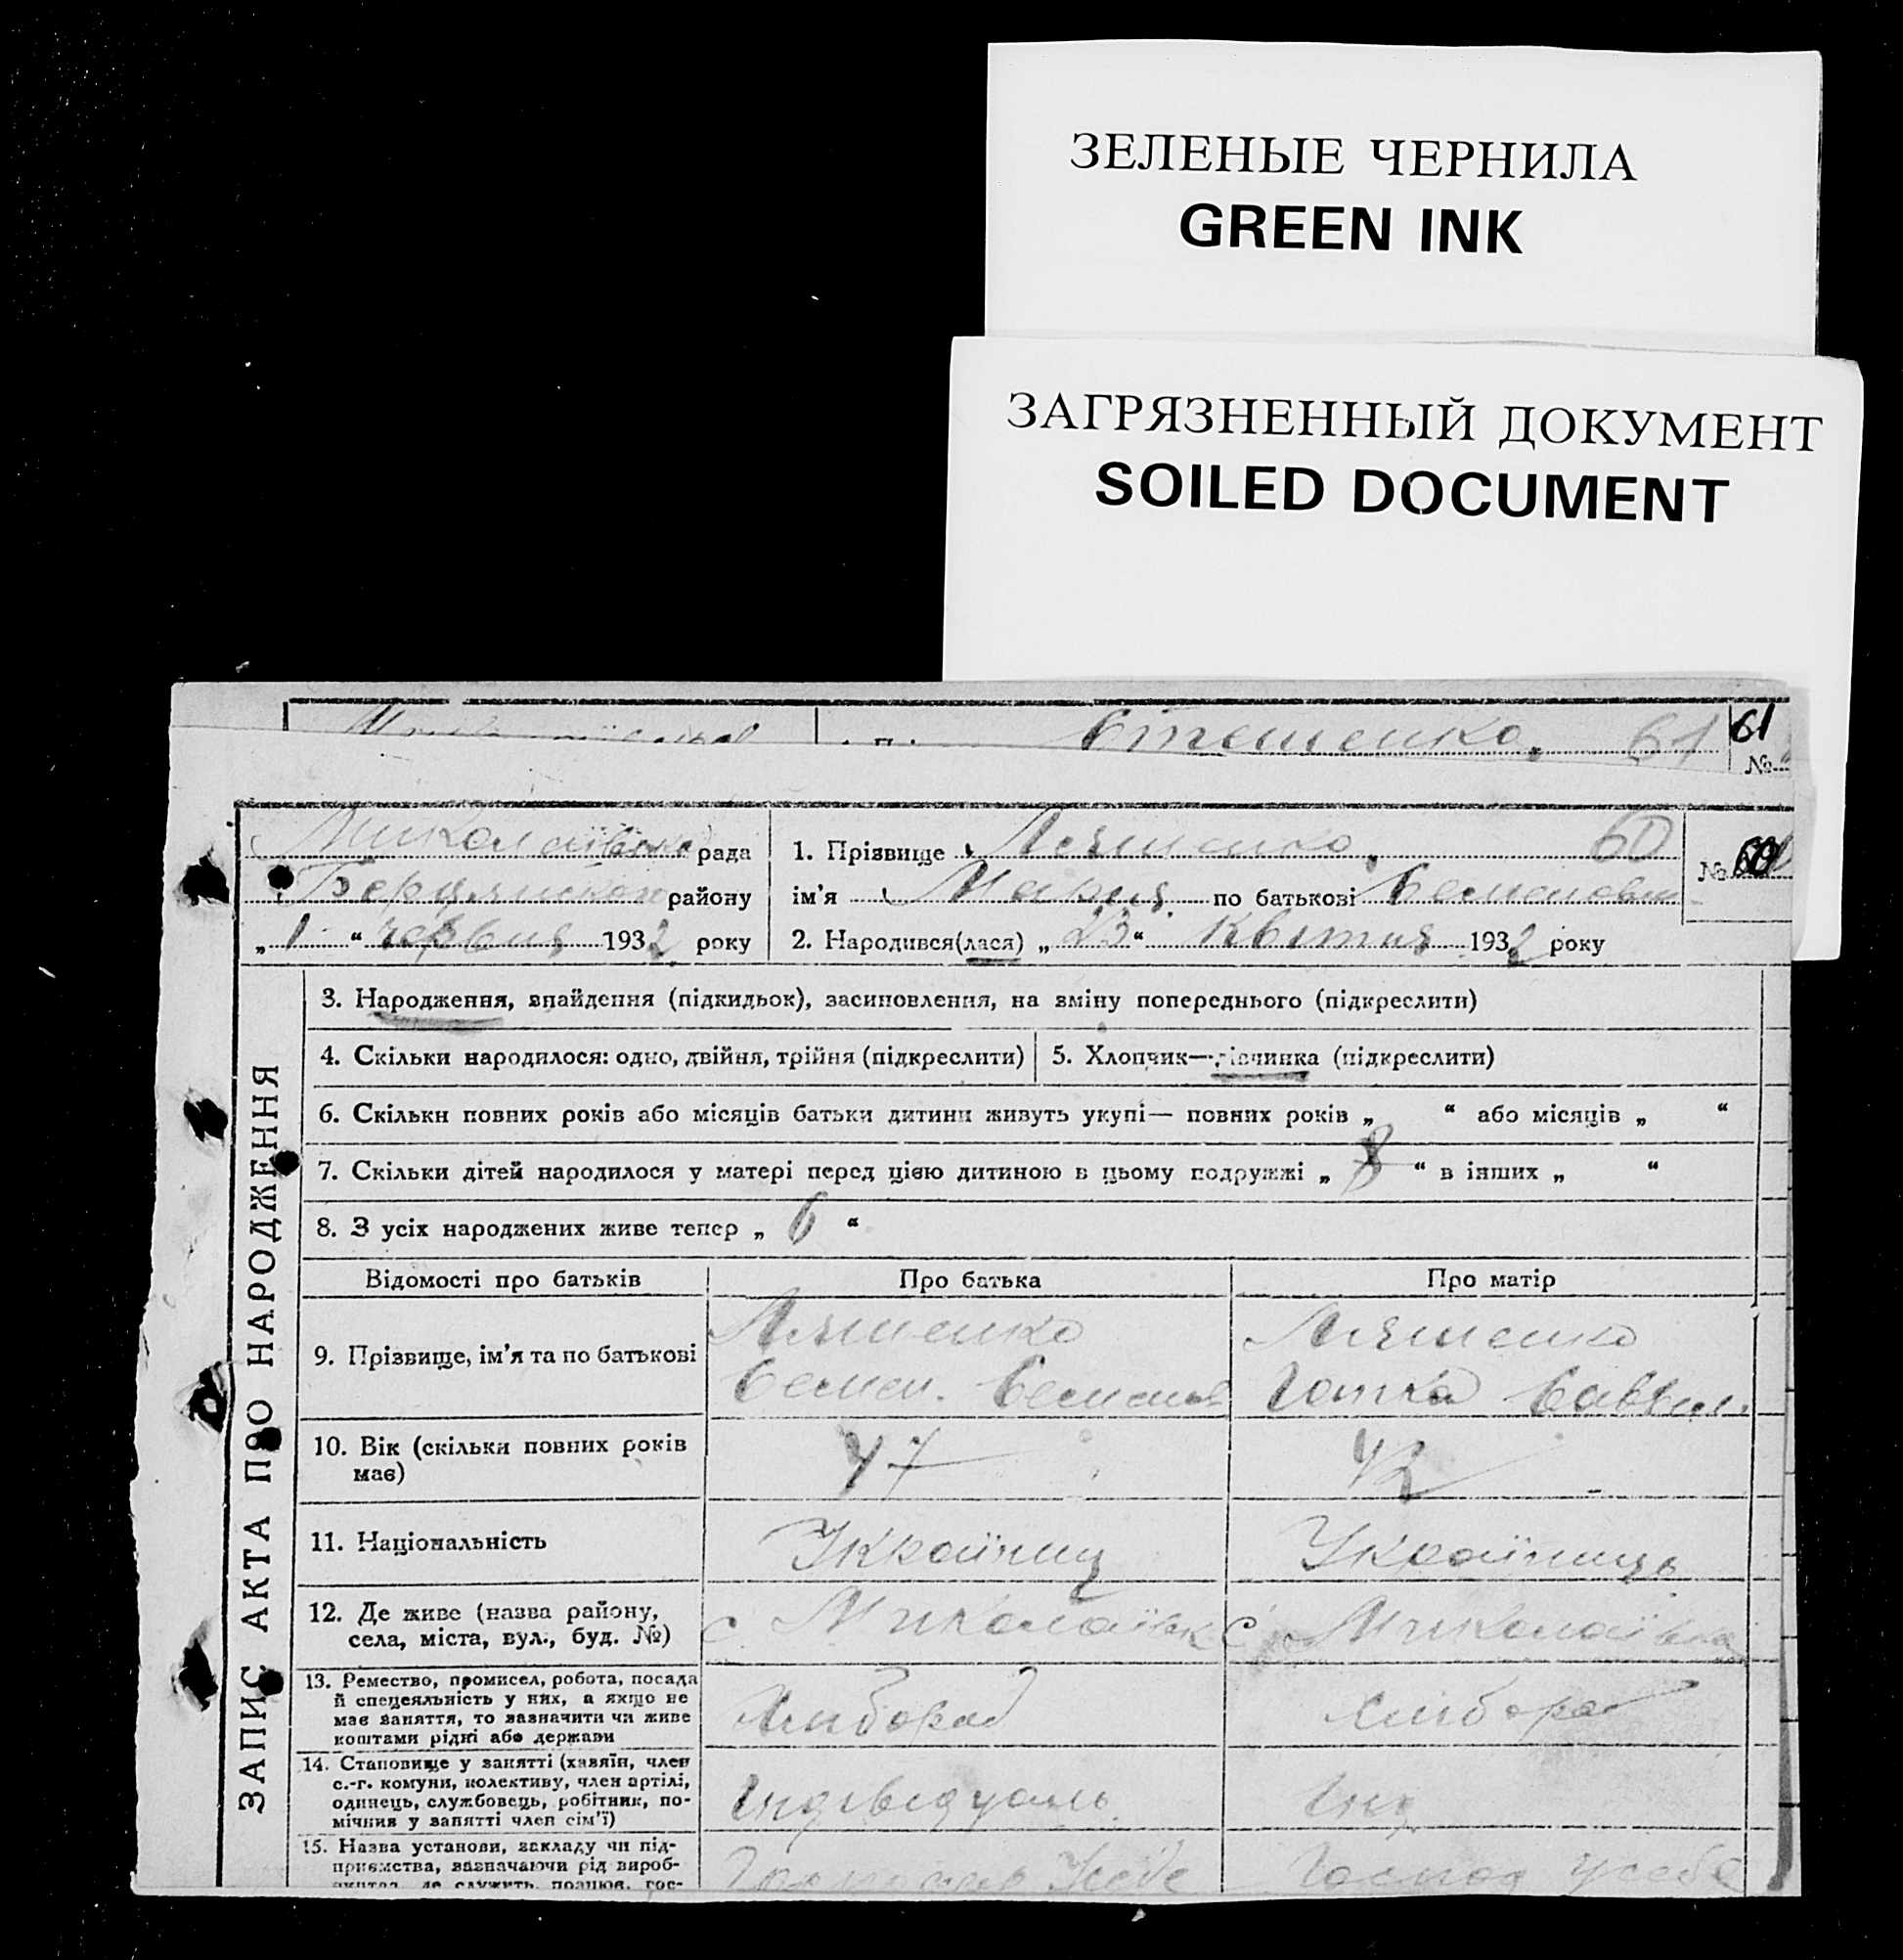 ЗЕЛЕНЫЕ ЧЕРНИЛА
GREEN INK
ЗАГРЯЗНЕННЫЙ ДОКУМЕНТ
SOILED DOCUMENT
61 61
№
Миколаївська рада
Бердянського району
„ 1 “ червня 1932 року
1. Прізвище Ляшенко 60
ім’я Мария по батькові Семеновна
2. Народився(лася) „ 23 “ Квітня 1932 року
№
ЗАПИС АКТА ПРО НАРОДЖЕННЯ
3. Народження, знайдення (підкидьок), засиновлення, на зміну попереднього (підкреслити)
4. Скільки народилося: одно, двійня, трійня (підкреслити)
5. Хлопчик—дівчинка (підкреслити)
6. Скільки повних років або місяців батьки дитини живуть укупі— повних років „ “ або місяців „ “
7. Скільки дітей народилося у матері перед цією дитиною в цьому подружжі „ 8 “ в інших „ “
8. З усіх народжених живе тепер „ 6 “
Відомості про батьків
Про батька
Про матір
9. Прізвище, ім’я та по батькові
Ляшенко
Семен.
Ляшенко
10. Вік (скільки повних років
має)
47
42
11. Національність
Українец
Українець
12. Де живе (назва району,
села, міста, вул., буд. №)
с. Миколаївк
с. Миколаївка
13. Ремество, промисел, робота, посада
й спецеяльність у них, а якщо не
має заняття, то зазначити чи живе
коштами рідні або держави
Хлібороб
хлібороб
14. Становище у занятті (хазяїн, член
с.-г. комуни, колективу, член артілі,
одинець, службовець, робітник, по-
мічник у занятті член сім’ї)
Індівідуаль
Інд
15. Назва установи, закладу чи під-
приємства, зазначаючи рід вироб-
ництва, де служить, працює, гос-
Господ у себе